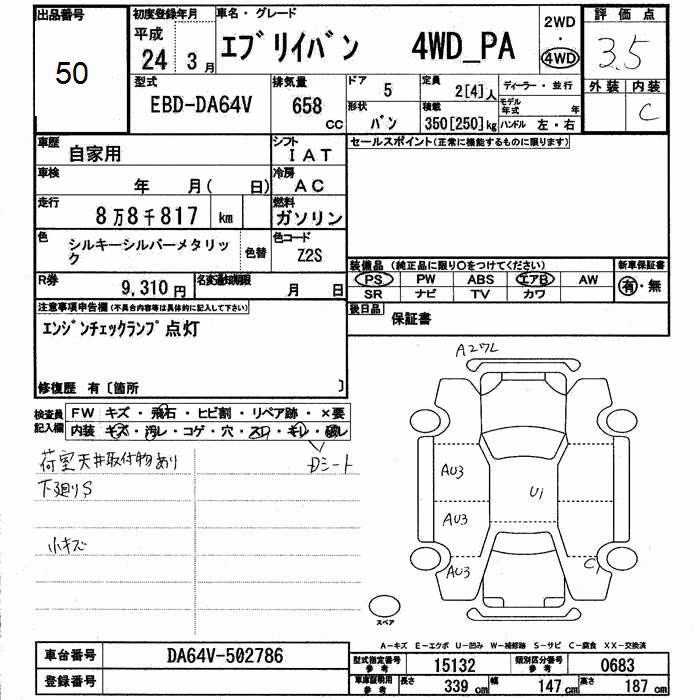 出品番号
50
初度登録年月
平成
24年 3月
車名・グレード
エブリイバン 4WD_PA
2WD
・
4WD
評価点
3.5
型式
EBD-DA64V
排気量
658
CC
ドア
5
定員
2[4]人
ディーラー・並行
形状
バン
積載
350[250]kg
モデル年式 年
ハンドル 左・右
外装 内装
C
車歴
自家用
シフト
IAT
セールスポイント(正常に機能するものに限ります)
車検
年 月( 日)
冷房
AC
走行
8万8千817 km
燃料
ガソリン
色
シルキーシルバーメタリック
色替
色コード
Z2S
装備品 (純正品に限り○をつけてください)
新車保証書
PS PW ABS エアB AW
有・無
SR ナビ TV カワ
R券
9,310円
名変通知期限
月 日
後日品
保証書
注意事項申告欄(不具合内容等は具体的に記入して下さい)
エンジンチェックランプ点灯
修復歴 有〔箇所 〕
検査員記入欄
FW キズ・飛石・ヒビ割・リペア跡・×要
内装 キズ・汚レ・コゲ・穴・スレ・キレ・破レ
Dシート
荷室天井取付物あり
下廻りS
小キズ
A27L
AU3
U1
AU3
AU3
C1
スペア
A-キズ E-エクボ U-凹み W-補修跡 S-サビ C-腐食 XX-交換済
車台番号
DA64V-502786
登録番号
型式指定番号参考
15132
類別区分番号参考
0683
車庫証明用参考
長さ 339cm 幅 147cm 高さ 187cm